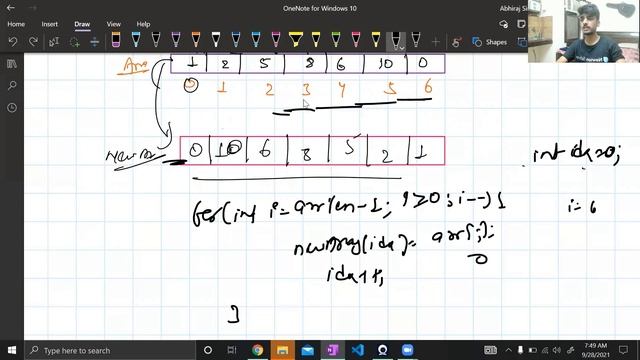 OneNote for Windows 10
Abhiraj
Arr 1 2 5 8 6 10 0
0 1 2 3 4 5 6
0 10 6 8 5 2 1
int idx=0;
for(int i=arrlen-1; i≥0; i--){
i=6
newArray[idx]= arr[i];
0
idx++;
}
Type here to search
7:49 AM
ENG
9/28/2021